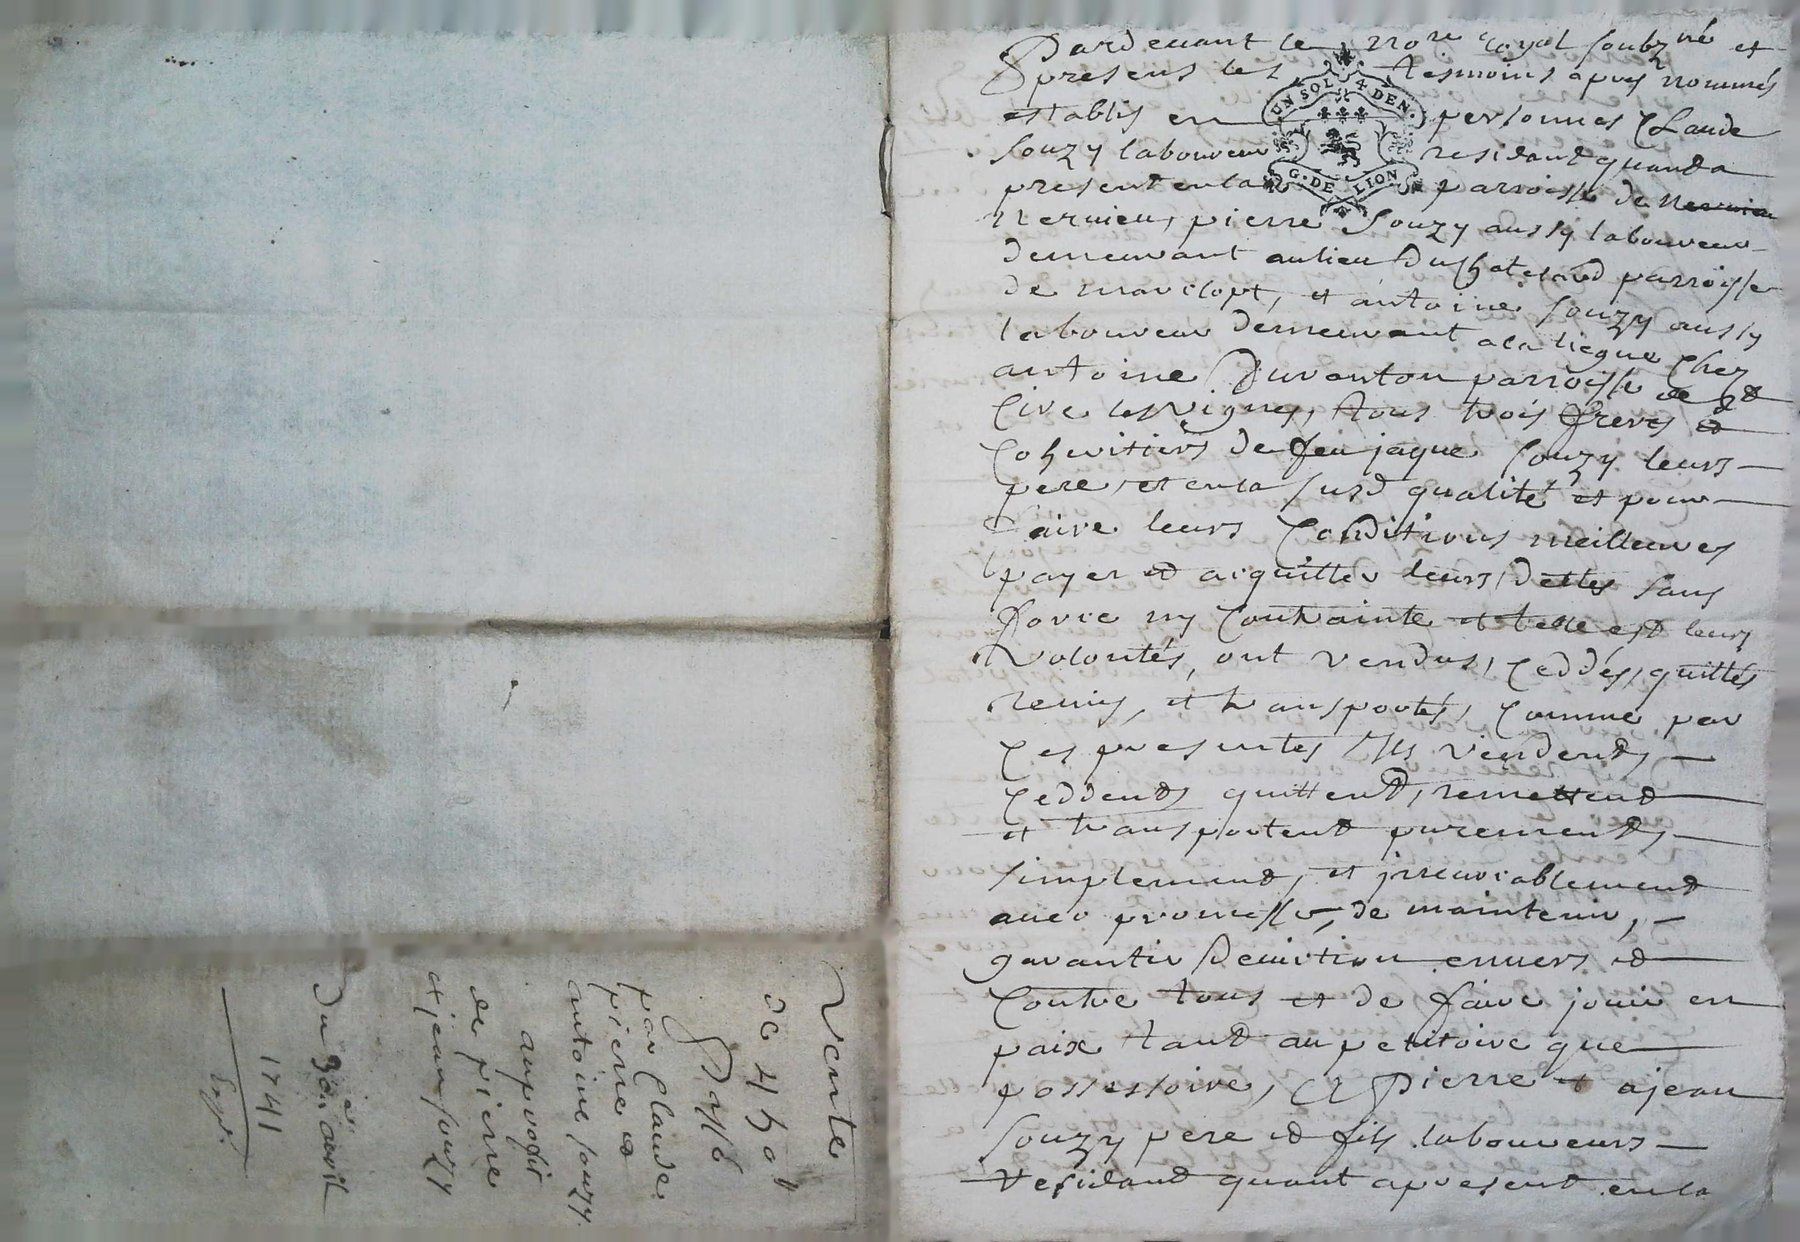 Pardevant le, no.re royal soubz.né et
presens les tesmoins apres nommés
establis en personnes Claude
Souzy laboureur residant quand a
present en la parroisse de
Nervieu, pierre Souzy aussy laboureur
demeurant au lieu du Chatelard parroisse
de marclopt, et antoine Souzy aussy
laboureur demeurant a la liegue Chez
antoine Duranton parroisse de St
Cire les vignes, tous trois freres et
Coheritiers de feu jaque Souzy leurs
pere, et en la susd qualité et pour
faire leurs Conditions meilleures
payer et acquitter leurs dettes sans
force ny Contrainte et telle est leurs
volontés, ont vendus, Ceddés, quittés
remis, et transportés, Comme par
Ces presentes Ils vendent,
Ceddent, quittent, remettent
et transportent purement,
simplement, et jrrevocablement
avec promesse, de maintenir,
garantir d'eviction envers et
Contre tous et de faire jouir en
paix tant au petitoire que
possessoire, A Pierre et a jean
Souzy pere et fils laboureurs
residant quant a present en la
UN SOL 4 DEN.
G. DE LION
Vente
de 450 ll
par Claude
pierre et
antoine Souzy
au profit
de pierre
et jean Souzy
Du 30 avril
1741